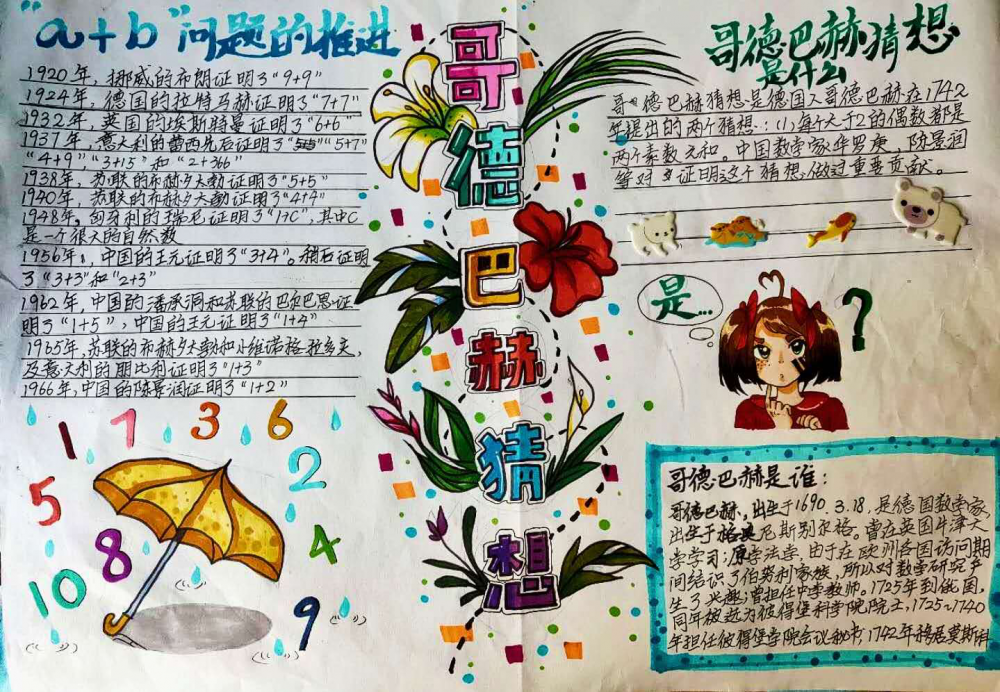 "a+b"问题的推进
1920年，挪威的布朗证明了"9+9"
1924年，德国的拉特马赫证明了"7+7"
1932年，英国的埃斯特曼证明了"6+6"
1937年，意大利的蕾西先后证明了"5+7"
"4+9" "3+15"和"2+366"
1938年，苏联的布赫夕太勃证明了"5+5"
1940年，苏联的布赫夕太勃证明了"4+4"
1948年。匈牙利的瑞尼证明了"1+C"，其中C
是一个很大的自然数
1956年，中国的王元证明了"3+4"。稍后证明
了"3+3"和"2+3"
1962年，中国的潘承洞和苏联的巴尔巴恩证
明了"1+5"，中国的王元证明了"1+4"
1965年，苏联的布赫夕太勃和小维诺格拉多夫，
及意大利的朋比利证明了"1+3"
1966年，中国的陈景润证明了"1+2"
1 7 3 6
5 2
8 4
10 9
哥
德
巴
赫
猜
想
哥德巴赫猜想
是什么
哥德巴赫猜想是德国人哥德巴赫在1742
年提出的两个猜想：(1)每个大于2的偶数都是
两个素数之和。中国数学家华罗庚，陈景润
等对证明这个猜想，做过重要贡献。
是…
?
哥德巴赫是谁：
哥德巴赫，出生于1690.3.18，是德国数学家，
出生于格奥尼斯别尔格。曾在英国牛津大
学学习；原学法学，由于在欧洲各国访问期
间结识了伯努利家族，所以对数学研究产
生了兴趣；曾担任中学教师。1725年到俄国，
同年被选为彼得堡科学院院士，1725~1740
年担任彼得堡学院会议秘书，1742年移居莫斯科